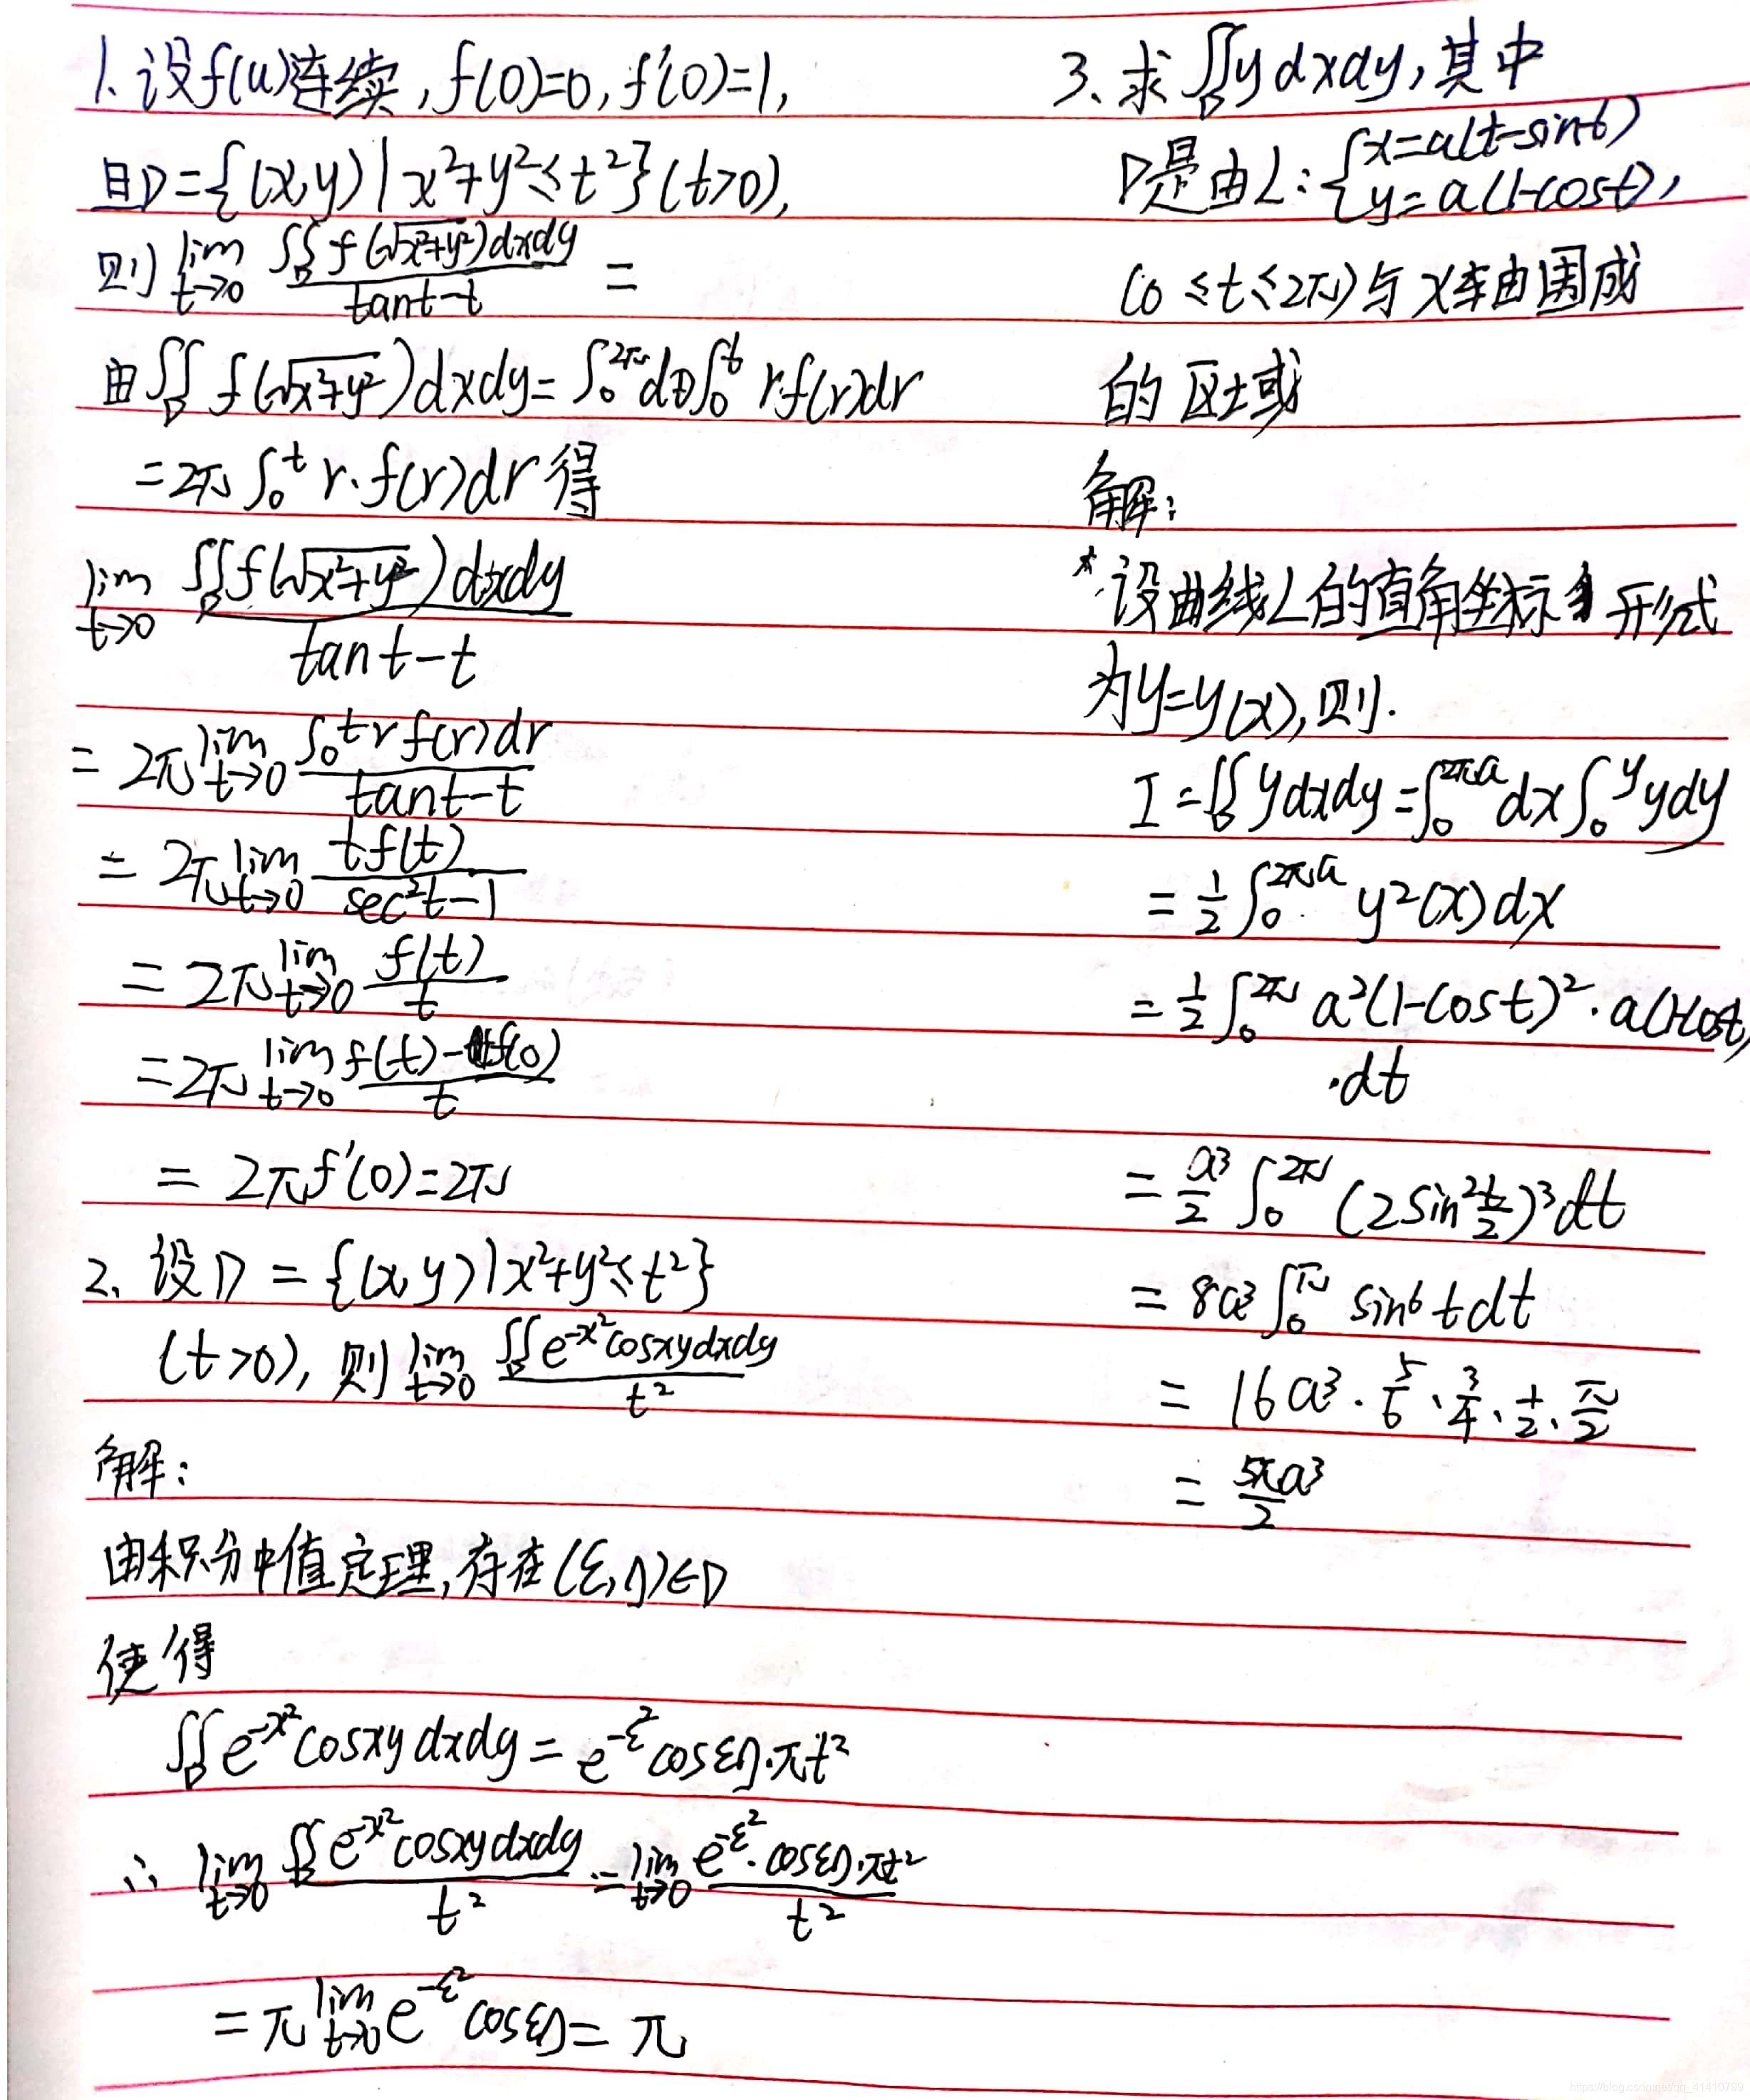 1. 设f(u)连续, f(0)=0, f'(0)=1,
且D={(x,y)|x²+y²≤t²}(t>0),
则 lim_{t→0} ∬_D f(√(x²+y²))dxdy / (tant-t) =
由∬_D f(√(x²+y²))dxdy=∫₀^{2π}dθ∫₀^t r·f(r)dr
=2π∫₀^t r·f(r)dr 得
lim_{t→0} ∬_D f(√(x²+y²))dxdy / (tant-t)
= 2π lim_{t→0} ∫₀^t r f(r)dr / (tant-t)
= 2π lim_{t→0} tf(t) / (sec²t-1)
= 2π lim_{t→0} f(t)/t
= 2π lim_{t→0} (f(t)-f(0))/t
= 2πf'(0)=2π
2. 设D={(x,y)|x²+y²≤t²}
(t>0), 则 lim_{t→0} ∬_D e^{-x²}cosxydxdy / t²
解:
由积分中值定理, 存在(ξ,η)∈D
使得
∬_D e^{-x²}cosxydxdy = e^{-ξ²}cosξη·πt²
∴ lim_{t→0} ∬_D e^{-x²}cosxydxdy / t² = lim_{t→0} e^{-ξ²}·cosξη·πt² / t²
= π lim_{t→0} e^{-ξ²}cosξη = π
3. 求∬_D ydxdy, 其中
D是由L: {x=a(t-sint)
y=a(1-cost),
(0≤t≤2π)与x轴围成
的区域
解:
* 设曲线L的直角坐标形式
为y=y(x), 则.
I=∬_D ydxdy=∫₀^{2πa}dx∫₀^y ydy
= 1/2 ∫₀^{2πa} y²(x)dx
= 1/2 ∫₀^{2π} a²(1-cost)²·a(1-cost)
·dt
= a³/2 ∫₀^{2π} (2sin² t/2)³dt
= 8a³∫₀^π sin⁶tdt
= 16a³·5/6·3/4·1/2·π/2
= 5πa³/2